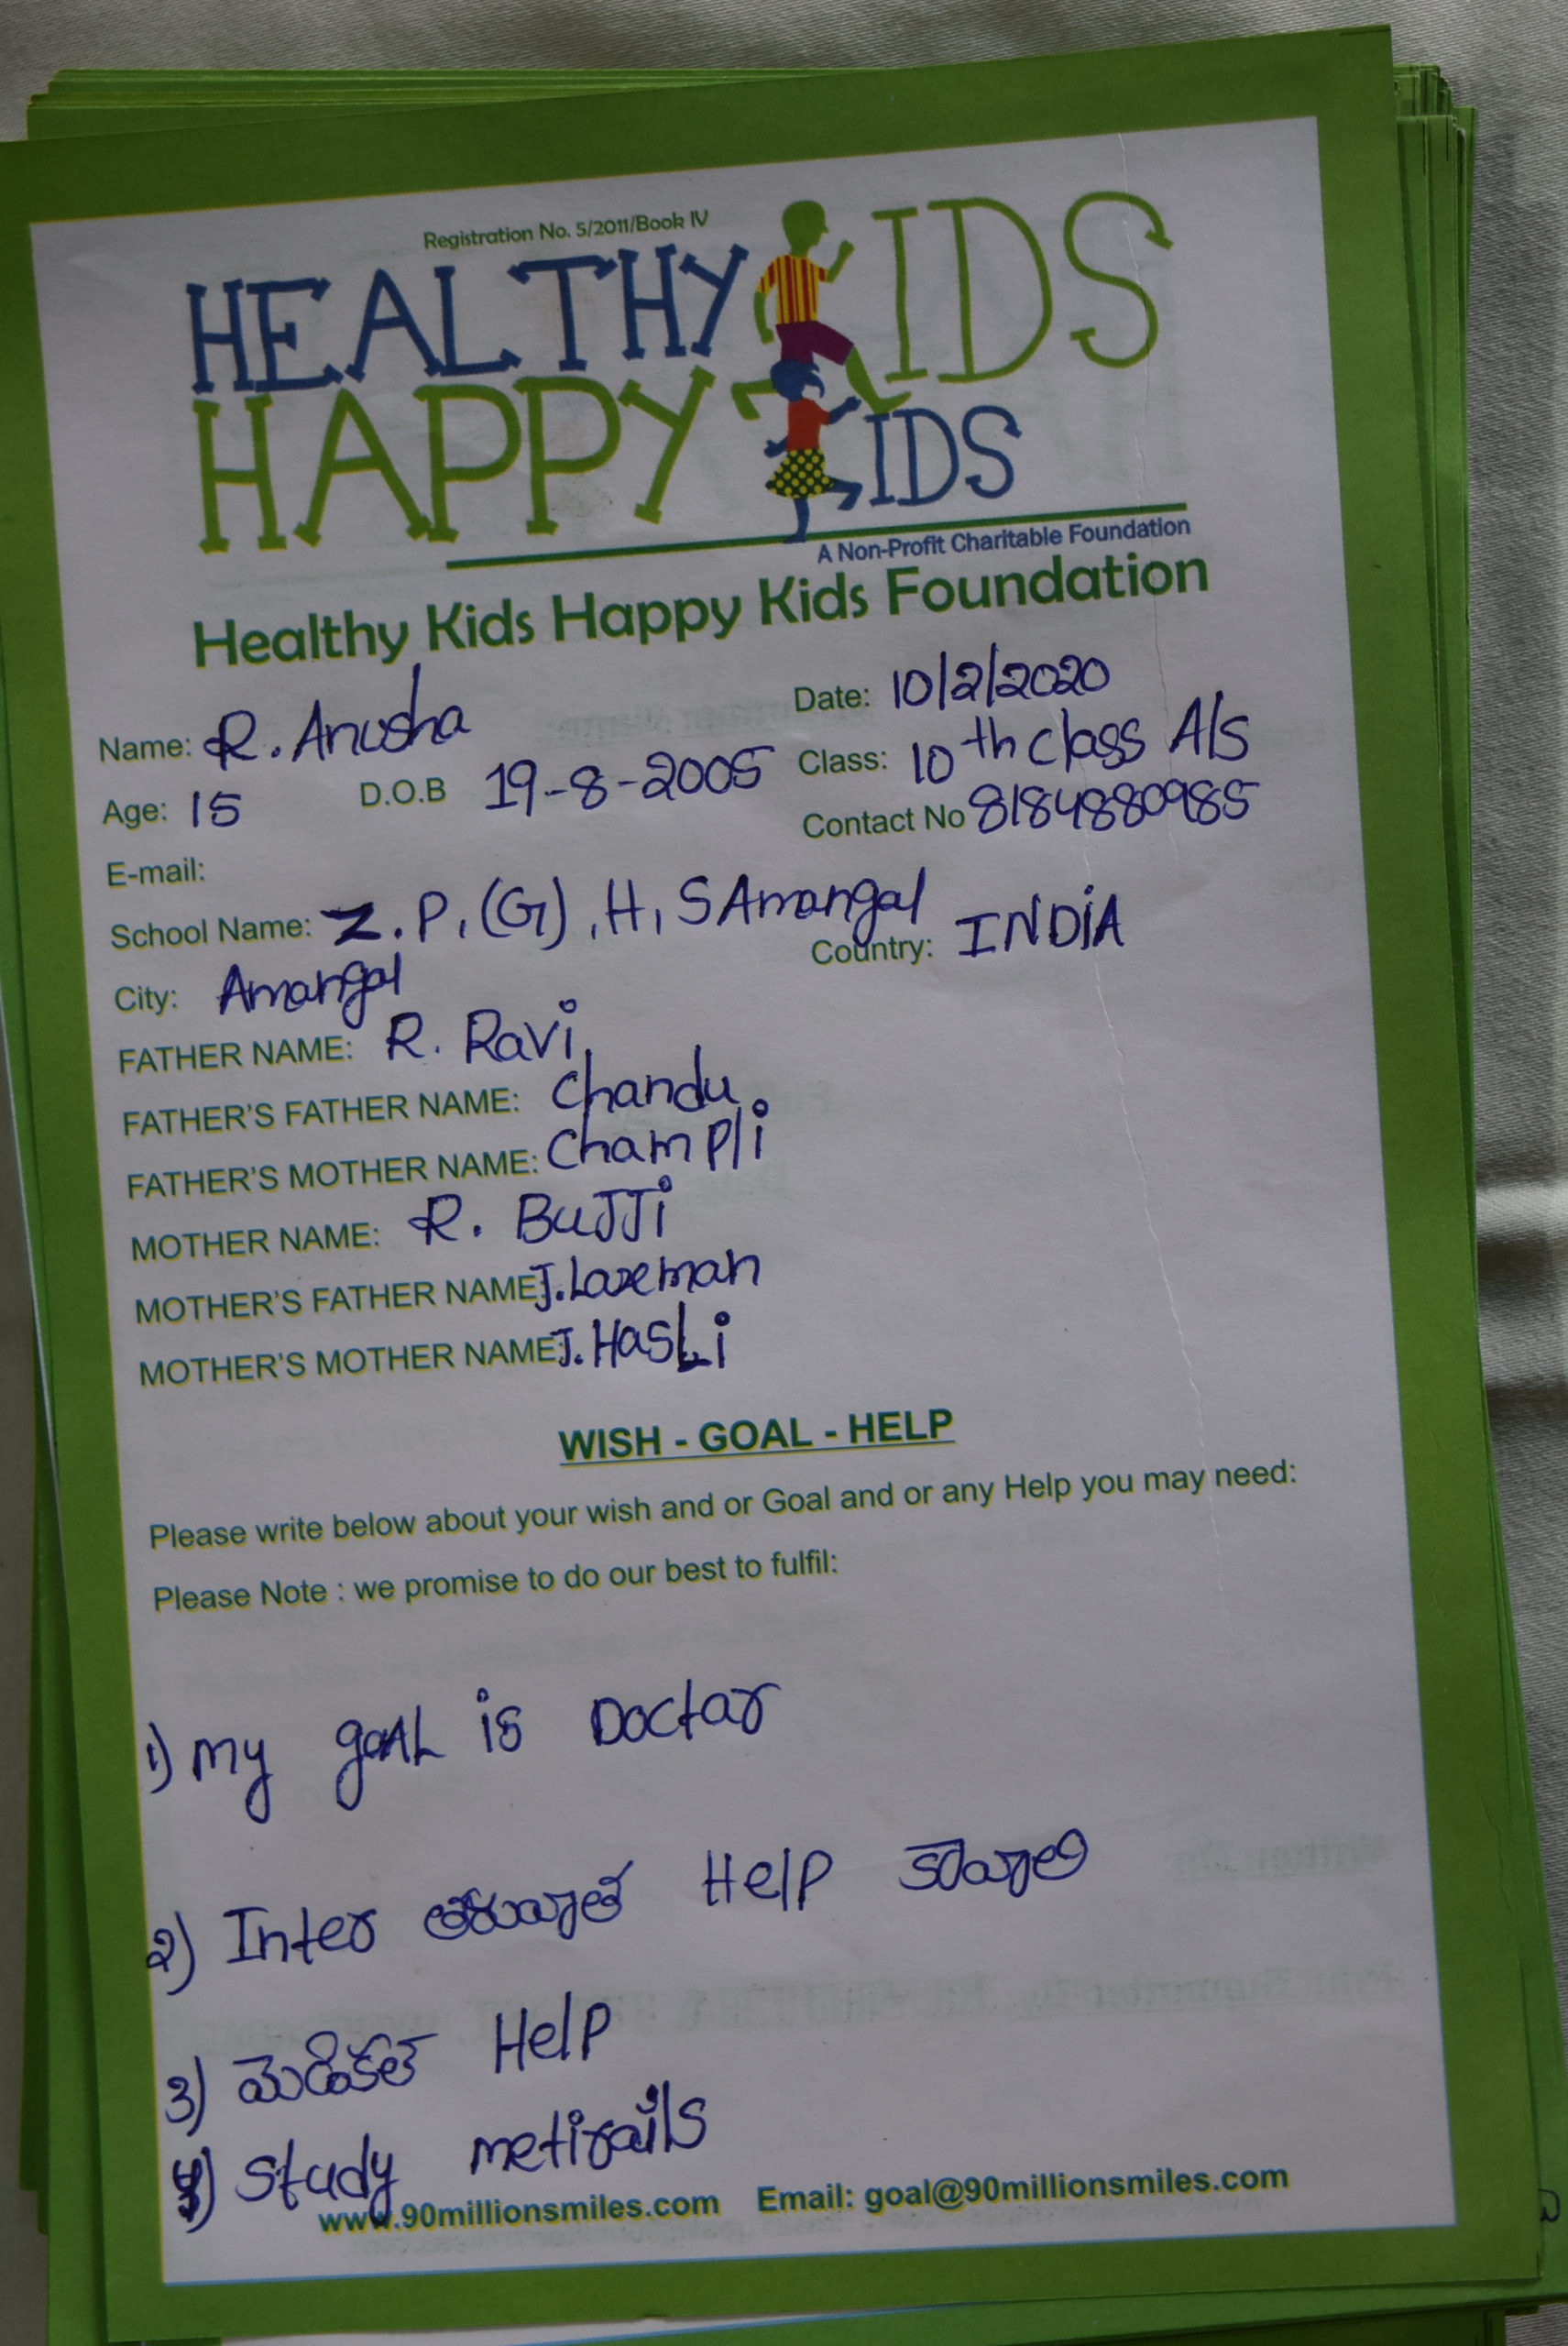 Registration No. 5/2011/Book IV
HEALTHY KIDS
HAPPY KIDS
A Non-Profit Charitable Foundation
Healthy Kids Happy Kids Foundation
Name: R. Anusha Date: 10/2/2020
Age: 15 D.O.B 19-8-2005 Class: 10th class A/S
Contact No 8184880985
E-mail:
School Name: Z.P.(G).H.S Amangal
City: Amangal Country: INDIA
FATHER NAME: R. Ravi
FATHER'S FATHER NAME: Chandu
FATHER'S MOTHER NAME: Champli
MOTHER NAME: R. BuJJi
MOTHER'S FATHER NAME: J. Laxeman
MOTHER'S MOTHER NAME: J. HasLi
WISH - GOAL - HELP
Please write below about your wish and or Goal and or any Help you may need:
Please Note : we promise to do our best to fulfil:
1) my goAL is Doctar
2) Inter తరువాత Help కావాలి
3) మెడికల్ Help
4) study metirails
www.90millionsmiles.com Email: goal@90millionsmiles.com